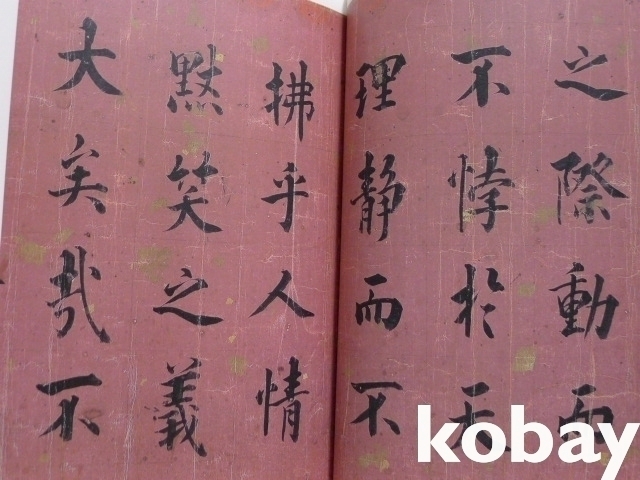 之際動而
不悖於天
理靜而不
拂乎人情
默笑之義
大矣哉不
kobay